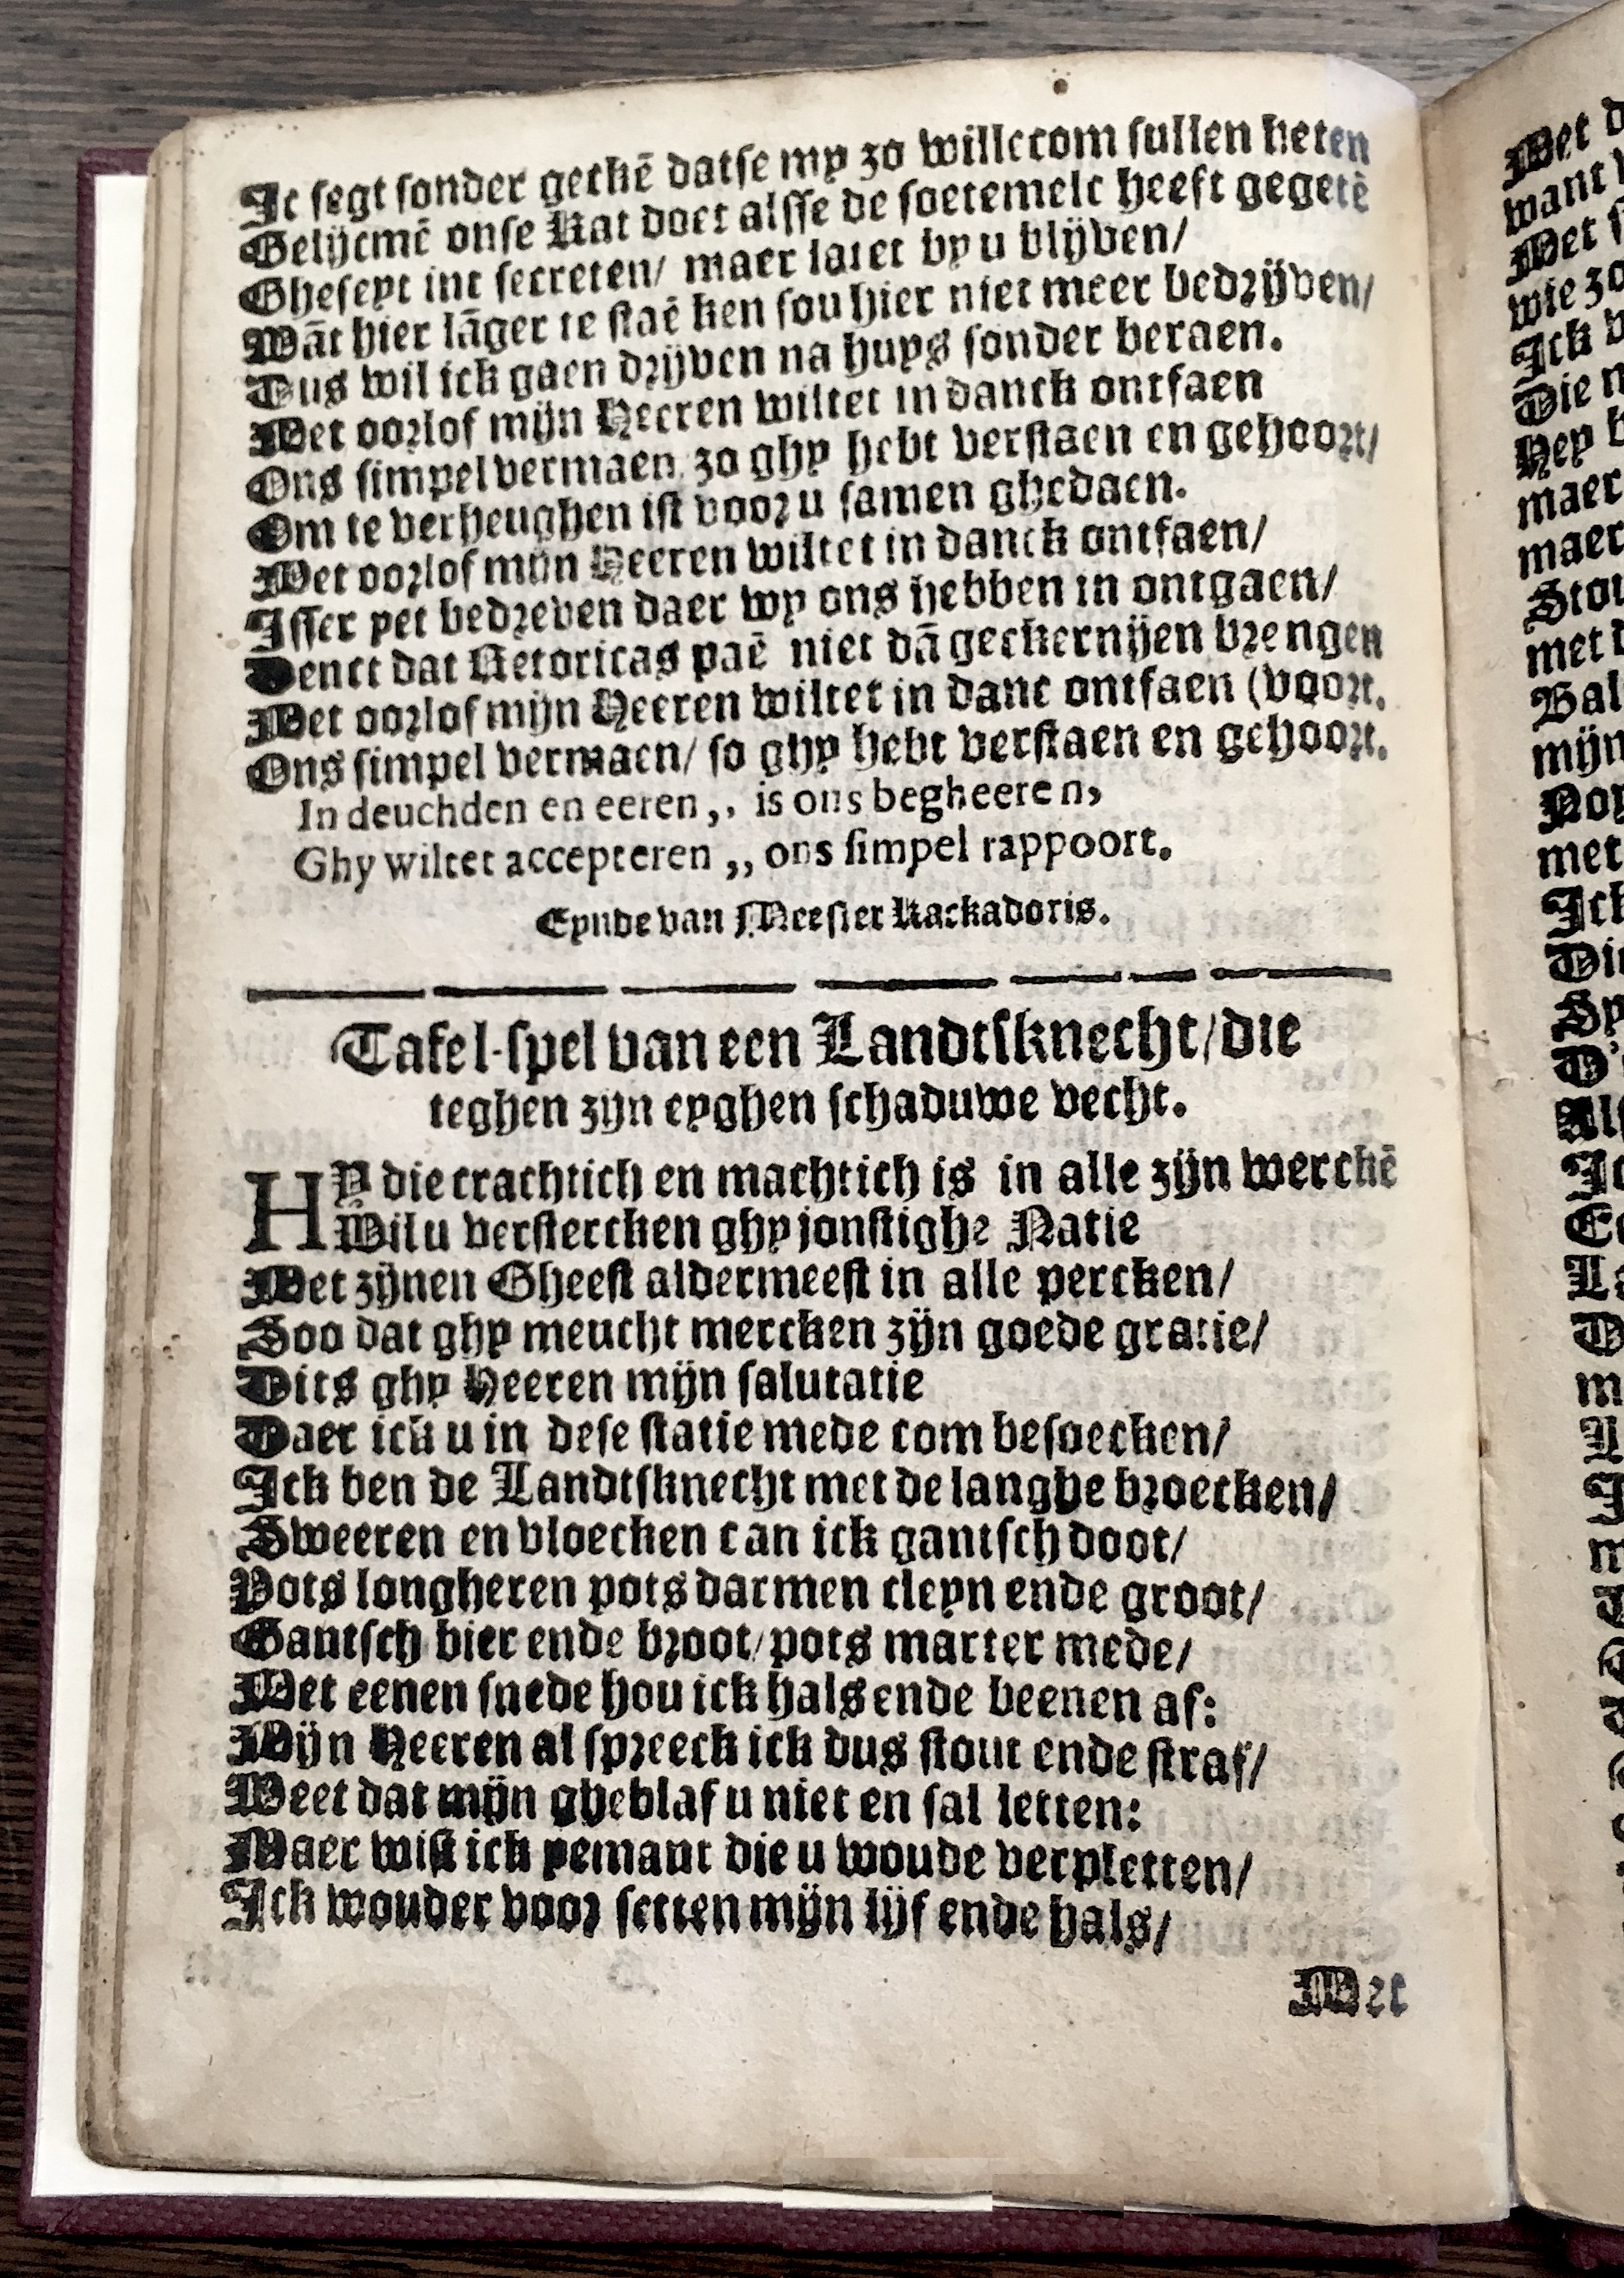 Ic segt sonder geckē datse my zo willecom sullen heten
Gelijcmē onse Kat doet alsse de soetemelc heeft gegetē
Gheseyt int secreten/ maer latet by u blijven/
Wāt hier lāger te staē ken sou hier niet meer bedrijven/
Dus wil ick gaen drijven na huys sonder beraen.
Met oorlof mijn Heeren wiltet in danck ontfaen
Ons simpel vermaen zo ghy hebt verstaen en gehoort/
Om te verheughen ist voor u samen ghedaen.
Met oorlof mijn Heeren wiltet in danck ontfaen/
Isser yet bedreven daer wy ons hebben in ontgaen/
Denct dat Retoricas paē niet dā geckernijen brengen
Met oorlof mijn Heeren wiltet in danc ontfaen (voort.
Ons simpel vermaen/ so ghy hebt verstaen en gehoort.
In deuchden en eeren,, is ons begheeren,
Ghy wiltet accepteren,, ons simpel rappoort.
Eynde van Meester Kackadoris.
Tafel-spel van een Landtsknecht/die
teghen zijn eyghen schaduwe vecht.
HY die crachtich en machtich is in alle zijn werckē
Wil u verstercken ghy jonstighe Natie
Met zijnen Gheest aldermeest in alle percken/
Soo dat ghy meucht mercken zijn goede gratie/
Dits ghy Heeren mijn salutatie
Daer ick u in dese statie mede com besoecken/
Ick ben de Landtsknecht met de langhe broecken/
Sweeren en vloecken can ick gantsch doot/
Pots longheren pots darmen cleyn ende groot/
Gantsch bier ende broot/pots marter mede/
Met eenen snede hou ick hals ende beenen af:
Mijn Heeren al spreeck ick dus stout ende straf/
Weet dat mijn gheblaf u niet en sal letten:
Maer wist ick yemant die u woude verpletten/
Ick wouder voor setten mijn lijf ende hals/
Met
Met
want
Met
wie zo
Ick
Die
Hey
maer
maer
met
mijn
met
Ick